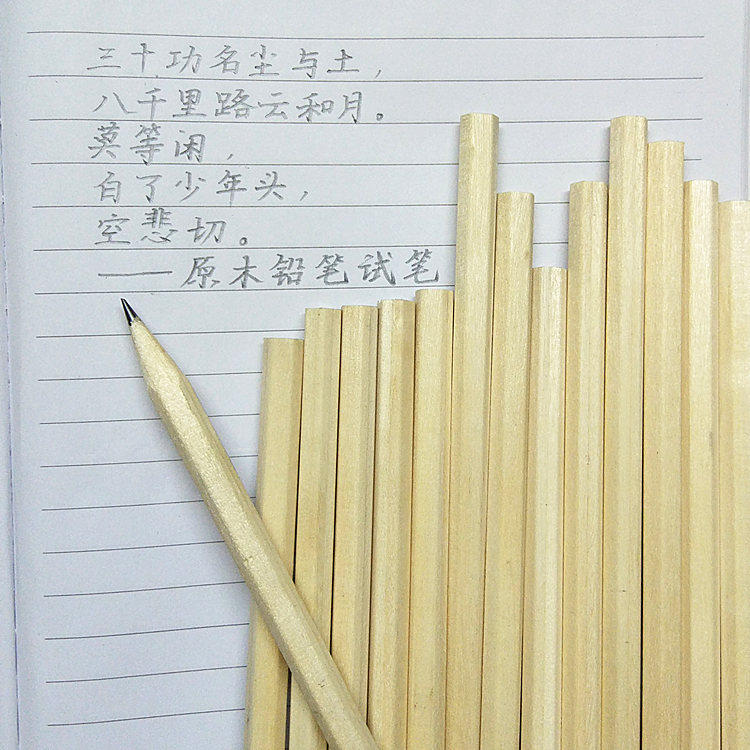 三十功名尘与土，
八千里路云和月。
莫等闲，
白了少年头，
空悲切。
——原木铅笔试笔